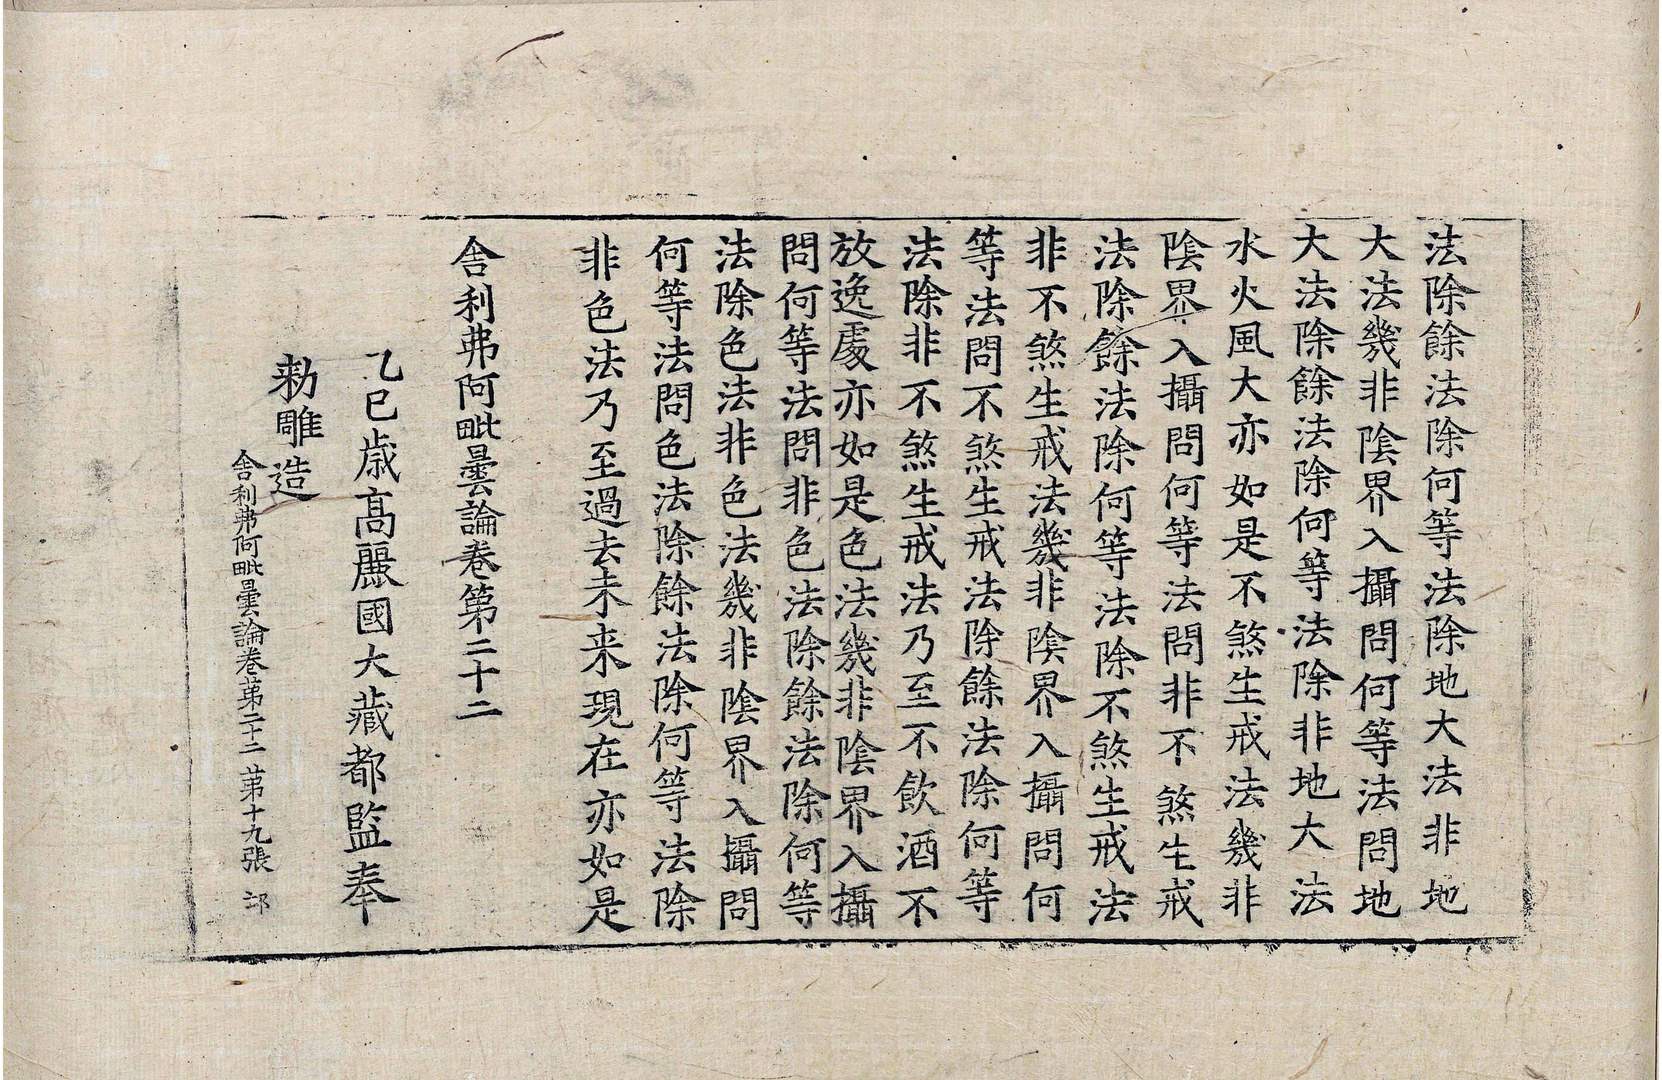 法除餘法除何等法除地大法非地
大法幾非陰界入攝問何等法問地
大法除餘法除何等法除非地大法
水火風大亦如是不煞生戒法幾非
陰界入攝問何等法問非不煞生戒
法除餘法除何等法除不煞生戒法
非不煞生戒法幾非陰界入攝問何
等法問不煞生戒法除餘法除何等
法除非不煞生戒法乃至不飲酒不
放逸處亦如是色法幾非陰界入攝
問何等法問非色法除餘法除何等
法除色法非色法幾非陰界入攝問
何等法問色法除餘法除何等法除
非色法乃至過去未来現在亦如是
舍利弗阿毗曇論卷第二十二
乙巳歳髙麗國大藏都監奉
勅雕造
舍利弗阿毗曇論卷第二十二 第十九張